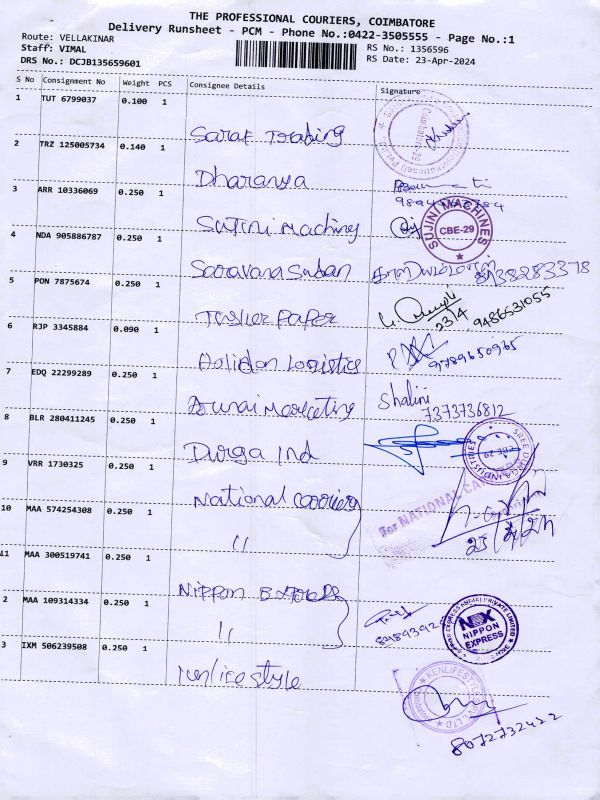 THE PROFESSIONAL COURIERS, COIMBATORE
Delivery Runsheet - PCM - Phone No.:0422-3505555 - Page No.:1
Route: VELLAKINAR
Staff: VIMAL
RS No.: 1356596
DRS No.: DCJB135659601
RS Date: 23-Apr-2024
S No Consignment No Weight PCS Consignee Details Signature
1 TUT 6799037 0.100 1
Saraf Trading
2 TRZ 125005734 0.140 1
Dharanya
3 ARR 10336069 0.250 1
Sujini Machiny
SUJINI MACHINES
CBE-29
4 NDA 905886787 0.250 1
Saravana Suban
5 PON 7875674 0.250 1
Tusker Paper
23/4 9486531055
6 RJP 3345884 0.090 1
Holidon Logistics
9789650965
7 EDQ 22299289 0.250 1
Shalini
7373736812
8 BLR 280411245 0.250 1
Durga Ind
SREE DURGA INDUSTRIES
CBE-29
9 VRR 1730325 0.250 1
National carring
For NATIONAL
10 MAA 574254308 0.250 1
"
11 MAA 300519741 0.250 1
Nippon Express
2 MAA 109314334 0.250 1
"
NX
NIPPON
EXPRESS
3 IXM 506239508 0.250 1
kenlifestyle
8072732422